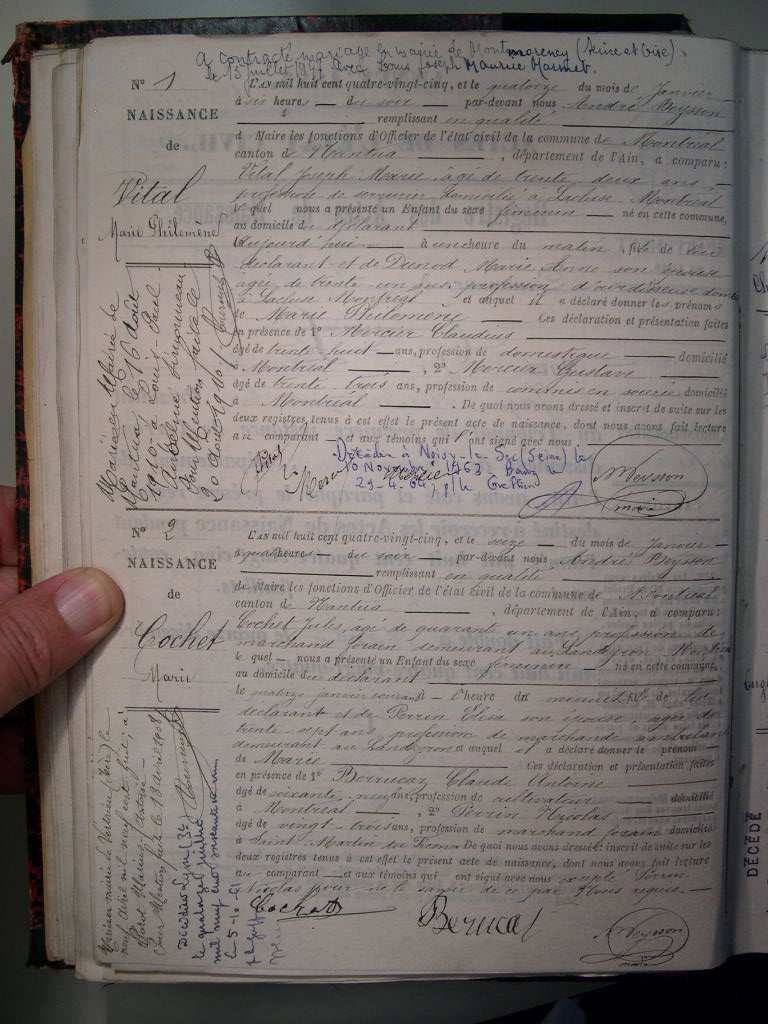 a contracté mariage en mairie de Montmorency (Seine et Oise)
le 13 juillet avec Louis Joseph Maurice
N° 1
NAISSANCE
de
Vital
Marie Philomène
L'AN mil huit cent quatre-vingt-cinq, et le quatorze du mois de Janvier
à six heures — du soir — par-devant nous André Meysson
remplissant en qualité
d Maire les fonctions d'Officier de l'état civil de la commune de Montréal
canton de Nantua, département de l'Ain, a comparu:
Vital Joseph Marie, âgé de trente deux ans,
profession de serrurier domicilié à Lacluse, Montréal
lequel nous a présenté un Enfant du sexe féminin — né en cette commune,
au domicile du déclarant
aujourd'hui — à une heure du matin, fils de lui
déclarant et de Dunod Marie Anne son épouse
âgée de trente un ans, profession d'ourdisseuse dom
à Lacluse Montréal et auquel il a déclaré donner les prénoms
de Marie Philomène Ces déclaration et présentation faites
en présence de 1° Mercier Claudius
âgé de trente huit ans, profession de domestique domicilié
à Montréal, 2° Mercier Gustave
âgé de trente trois ans, profession de commis en soierie domicilié
à Montréal. De quoi nous avons dressé et inscrit de suite sur les
deux registres, tenus à cet effet le présent acte de naissance, dont nous avons fait lecture
au comparant — et aux témoins qui l'ont signé avec nous.
Vital
Mercier
Meysson
maire
Décédée à Noisy-le-Sec (Seine) le
10 Novembre 1963
29-4-64, p/le Greffier
Mariée à la Mairie de
Nantua, le 16 août
1910 à Louis-Paul
Pour Mention faite le
20 août 1910
N° 2
NAISSANCE
de
Cochet
Marie
L'AN mil huit cent quatre-vingt-cinq, et le seize — du mois de Janvier
à quatre heures — du soir — par-devant nous André Meysson
remplissant en qualité
de Maire les fonctions d'Officier de l'état civil de la commune de Montréal
canton de Nantua, département de l'Ain, a comparu:
Cochet Jules, âgé de quarante un ans, profession de
marchand forain demeurant au Landeyron, Montréal
lequel — nous a présenté un Enfant du sexe féminin — né en cette commune,
au domicile du déclarant
le quatorze janvier courant à — l'heure de minuit, fils de lui
déclarant et de Perrin Elisa son épouse, âgée de
trente sept ans, profession de marchande ambulante
demeurant au Landeyron et auquel il a déclaré donner le prénom
de Marie Ces déclaration et présentation faites
en présence de 1° Borrucaz Claude Antoine
âgé de soixante neuf ans, profession de cultivateur domicilié
à Montréal, 2° Perrin Nicolas
âgé de vingt trois ans, profession de marchand forain domicilié
à Saint Martin du Frêne De quoi nous avons dressé et inscrit de suite sur les
deux registres tenus à cet effet le présent acte de naissance, dont nous avons fait lecture
au comparant — et aux témoins qui ont signé avec nous excepté Perrin
Nicolas pour ne le savoir de ce par Nous requis.
Cochet
Meysson
maire
Mariée mairie de
neuf Avril mil neuf cent huit, à
Pour Mention faite le 13 avril 1908
Décédée à Lyon (3e)
le quatorze juillet
mil neuf cent soixante un
le 5-10-61
DÉCÉDÉ